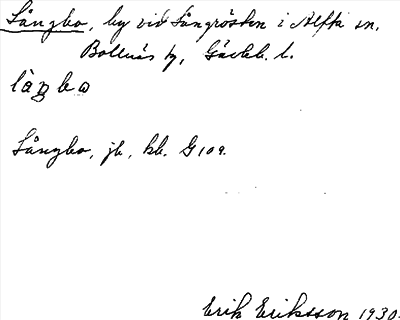 Långbo, by vid Långrösten i Alfta sn,
Bollnäs tg, Gävleb. l.
làŋbo
Långbo, jb, kb. G 109.
Erik Eriksson 1930.